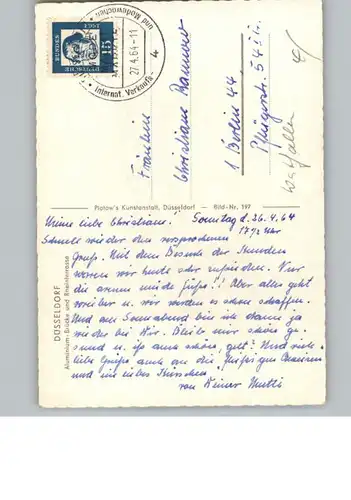 und Modewochen
27.4.64-11
Internat. Verkaufs-
4
DEUTSCHE
BUNDES
POST
15
Fräulein
Christiane
1 Berlin 44
Pflügerstr. 54
Platow's Kunstanstalt, Düsseldorf – Bild-Nr. 197
DÜSSELDORF
Aluminium-Brücke und Rheinterrasse
Meine liebe Christiane! Sonntag d. 26.4.64
17½ Uhr
Schnell wieder den versprochenen
Gruß. Mit dem Besuch der Kunden
waren wir heute sehr zufrieden. Nur
die armen müde Füße!! Aber alles geht
vorüber u. wir werden es schon schaffen.
Und am Sonnabend bin ich dann ja
wieder bei Dir. Bleib mir schön ge-
sund u. iß auch schön, gelt? Und viele
liebe Grüße auch an die fleißigen
und ein liebes Küsschen
von Deiner Mutti